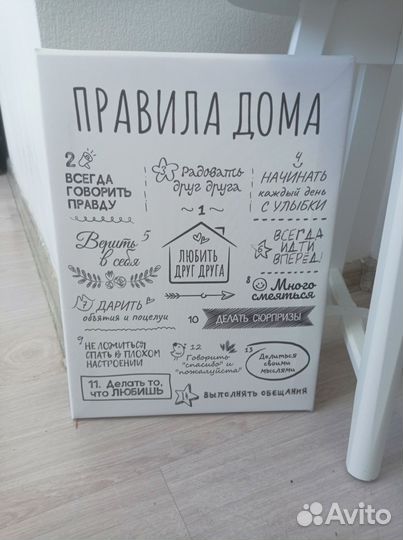 ПРАВИЛА ДОМА
2
ВСЕГДА
ГОВОРИТЬ
ПРАВДУ
3
Радовать
друг друга
4
НАЧИНАТЬ
каждый день
С УЛЫБКИ
~ 1 ~
ЛЮБИТЬ
ДРУГ ДРУГА
5
Верить
в себя
6
ВСЕГДА
ИДТИ
ВПЕРЁД!
7
ДАРИТЬ
объятия и поцелуи
8
Много
смеяться
9
НЕ ЛОЖИТЬСЯ
СПАТЬ В ПЛОХОМ
НАСТРОЕНИИ
10 ДЕЛАТЬ СЮРПРИЗЫ
11. Делать то,
что ЛЮБИШЬ
12
Говорить
"спасибо" и
"пожалуйста"
13
Делиться
своими
мыслями
14 ВЫПОЛНЯТЬ ОБЕЩАНИЯ
Avito